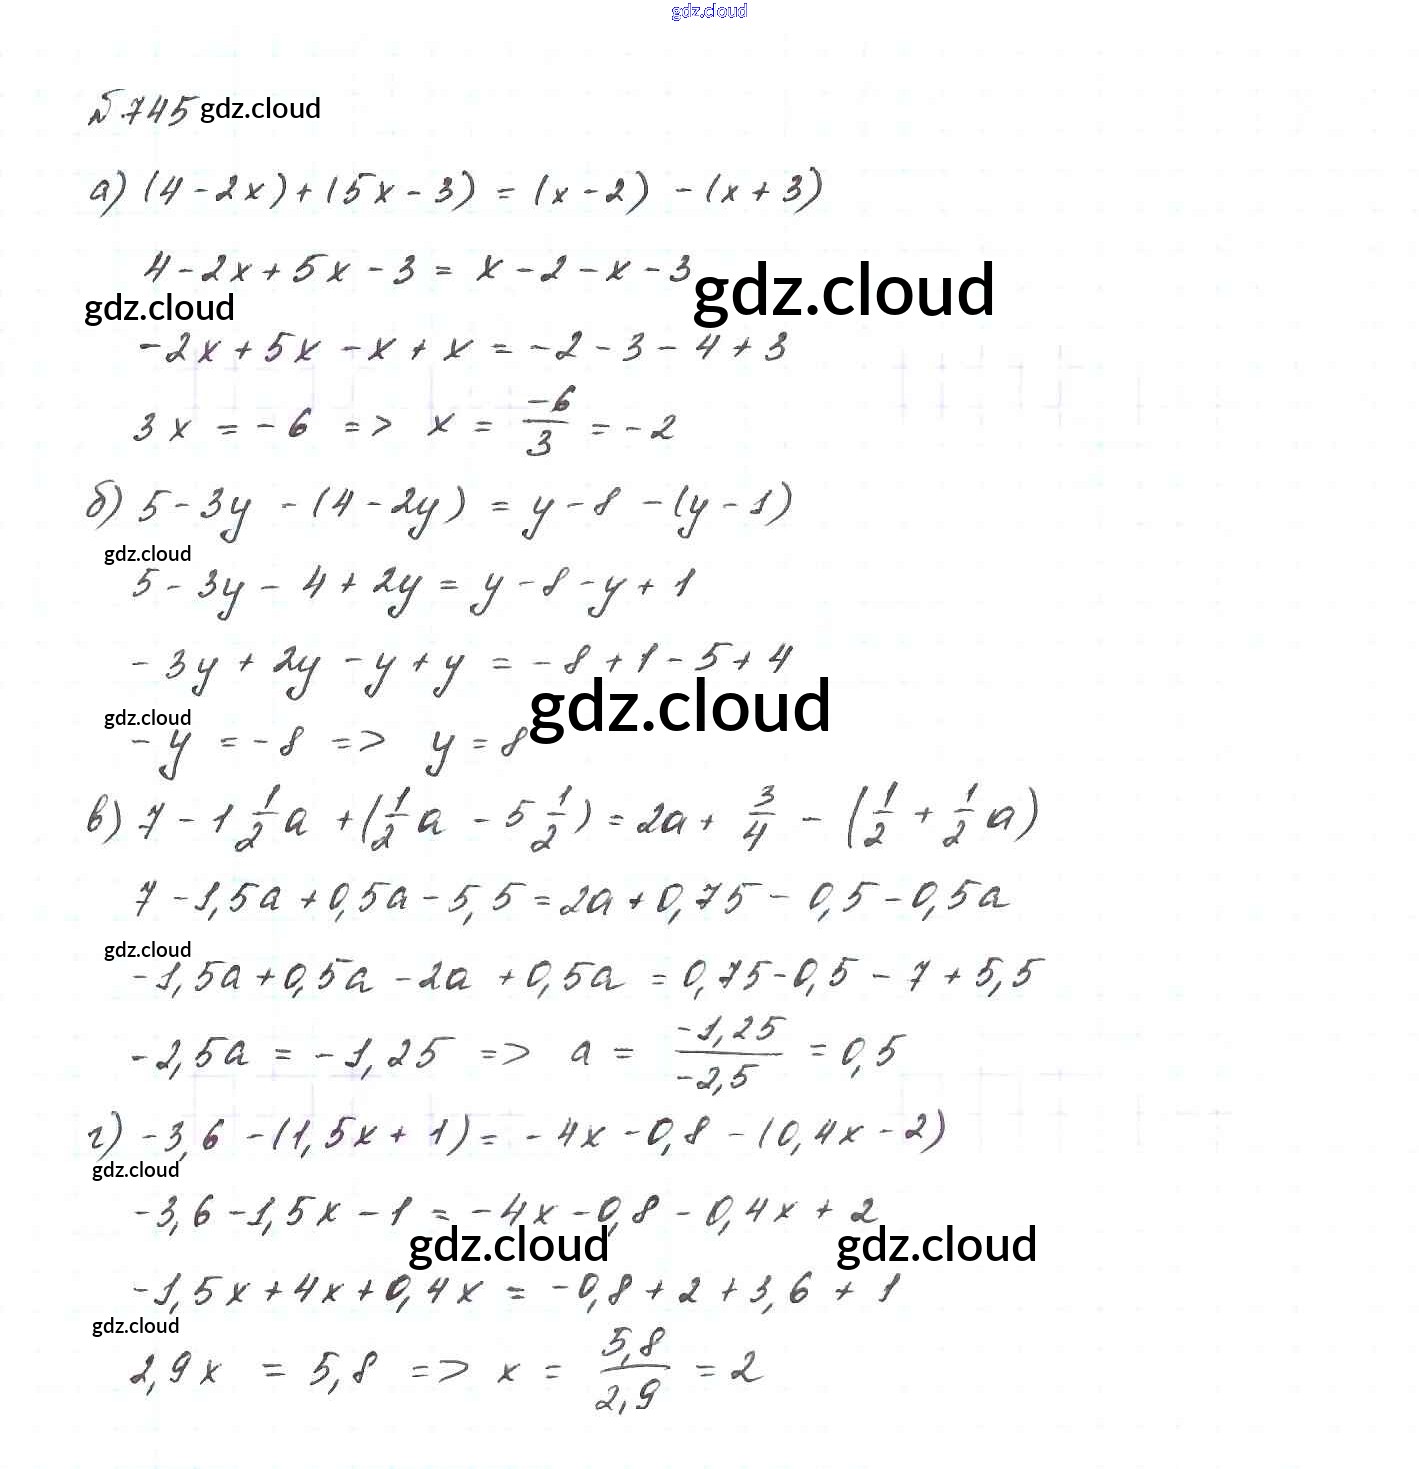 gdz.cloud
№ 745 gdz.cloud
а) (4 - 2x) + (5x - 3) = (x - 2) - (x + 3)
4 - 2x + 5x - 3 = x - 2 - x - 3 gdz.cloud
gdz.cloud
-2x + 5x - x + x = -2 - 3 - 4 + 3
3x = -6 => x = -6/3 = -2
б) 5 - 3y - (4 - 2y) = y - 8 - (y - 1)
gdz.cloud
5 - 3y - 4 + 2y = y - 8 - y + 1
-3y + 2y - y + y = -8 + 1 - 5 + 4
gdz.cloud
gdz.cloud
-y = -8 => y = 8
в) 7 - 1 1/2 a + (1/2 a - 5 1/2) = 2a + 3/4 - (1/2 + 1/2 a)
7 - 1,5a + 0,5a - 5,5 = 2a + 0,75 - 0,5 - 0,5a
gdz.cloud
-1,5a + 0,5a - 2a + 0,5a = 0,75 - 0,5 - 7 + 5,5
-2,5a = -1,25 => a = -1,25/-2,5 = 0,5
г) -3,6 - (1,5x + 1) = -4x - 0,8 - (0,4x - 2)
gdz.cloud
-3,6 - 1,5x - 1 = -4x - 0,8 - 0,4x + 2
gdz.cloud gdz.cloud
-1,5x + 4x + 0,4x = -0,8 + 2 + 3,6 + 1
gdz.cloud
2,9x = 5,8 => x = 5,8/2,9 = 2